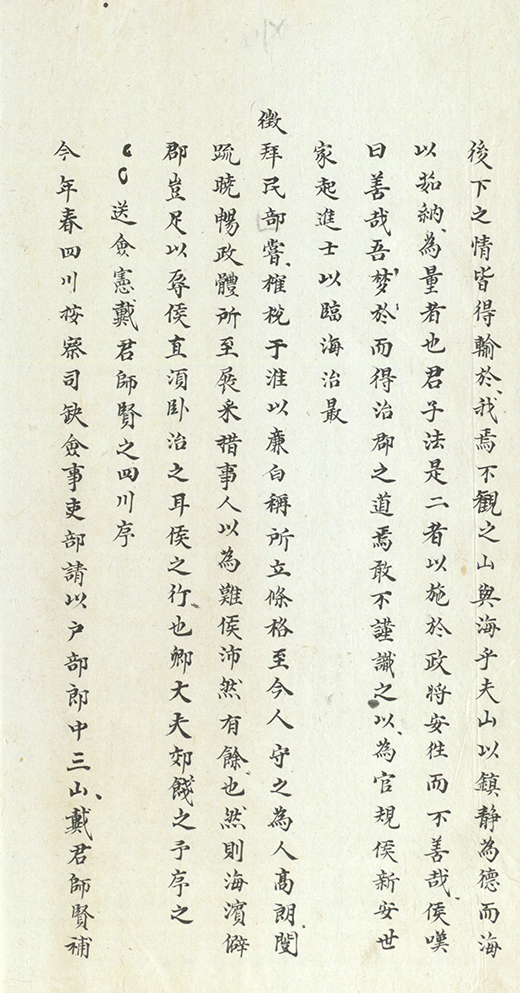 後下之情皆得輸於我焉不觀之山與海乎夫山以鎮静為德而海
以茹納為量者也君子法是二者以施於政將安徃而不善哉侯嘆
曰善哉吾梦於而得治郡之道焉敢不謹識之以為官規侯新安世
家起進士以臨海治最
徵拜民部嘗榷稅于淮以廉白稱所立條格至今人守之為人髙朗閎
䟽曉暢政體所至展采措事人以為難侯沛然有餘也然則海濱僻
郡豈足以辱侯直湏卧治之耳侯之行也卿大夫郊餞之予序之
送僉憲戴君師賢之四川序
今年春四川按察司缺僉事吏部請以户部郎中三山戴君師賢補